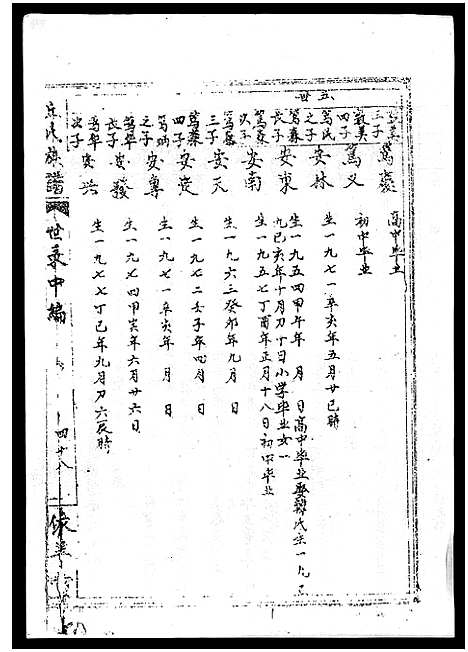 五
廿
三子 篤慶 高中毕业
毅美 四子 篤义 初中毕业
篤民 之子 安林 生一九七一辛亥年五月廿巳時
篤森 長子 安東 生一九五四甲午年 月 日高中毕业娶韓氏生一九
九己亥年十月刀十日小学毕业女一
篤森 次子 安南 生一九五七丁酉年正月十八日初中毕业
篤森 三子 安天 生一九六三癸卯年九月
篤森 四子 安定 生一九七二壬子年四月 日
篤炳 之子 安專 生一九七一辛亥年 月 日
篤华 長子 安發 生一九七四甲寅年六月廿六日
篤华 次子 安兴 生一九七七丁巳年九月刀六辰時
族譜
世系中編
四廿八